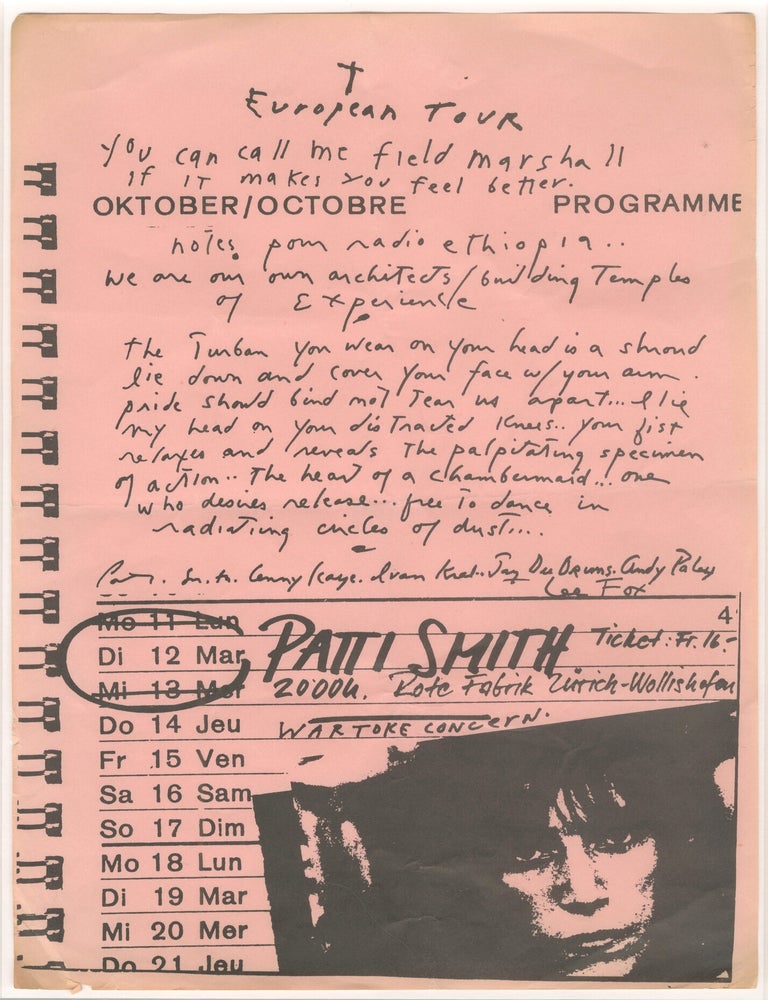 European Tour
you can call me field marshall
if it makes you feel better.
OKTOBER/OCTOBRE PROGRAMME
notes pour radio ethiopia..
we are our own architects/building Temples
of Experience
the Turban you wear on your head is a shroud
lie down and cover your face w/your arm.
pride should bind not Tear us apart... I lie
my head on your distracted knees.. your fist
relaxes and reveals the palpitating specimen
of action.. The heart of a chambermaid... one
who desires release... free to dance in
radiating circles of dust...
Lenny Kaye. Ivan Kral. Jay Dee Drums. Andy Paley
Lee Fox
4
Mo 11 Lun
Di 12 Mar PATTI SMITH Ticket: Fr. 16.-
Mi 13 Mer 2000h. Rote Fabrik Zürich-Wollishofen
Do 14 Jeu WARTOKE CONCERN.
Fr 15 Ven
Sa 16 Sam
So 17 Dim
Mo 18 Lun
Di 19 Mar
Mi 20 Mer
Do 21 Jeu